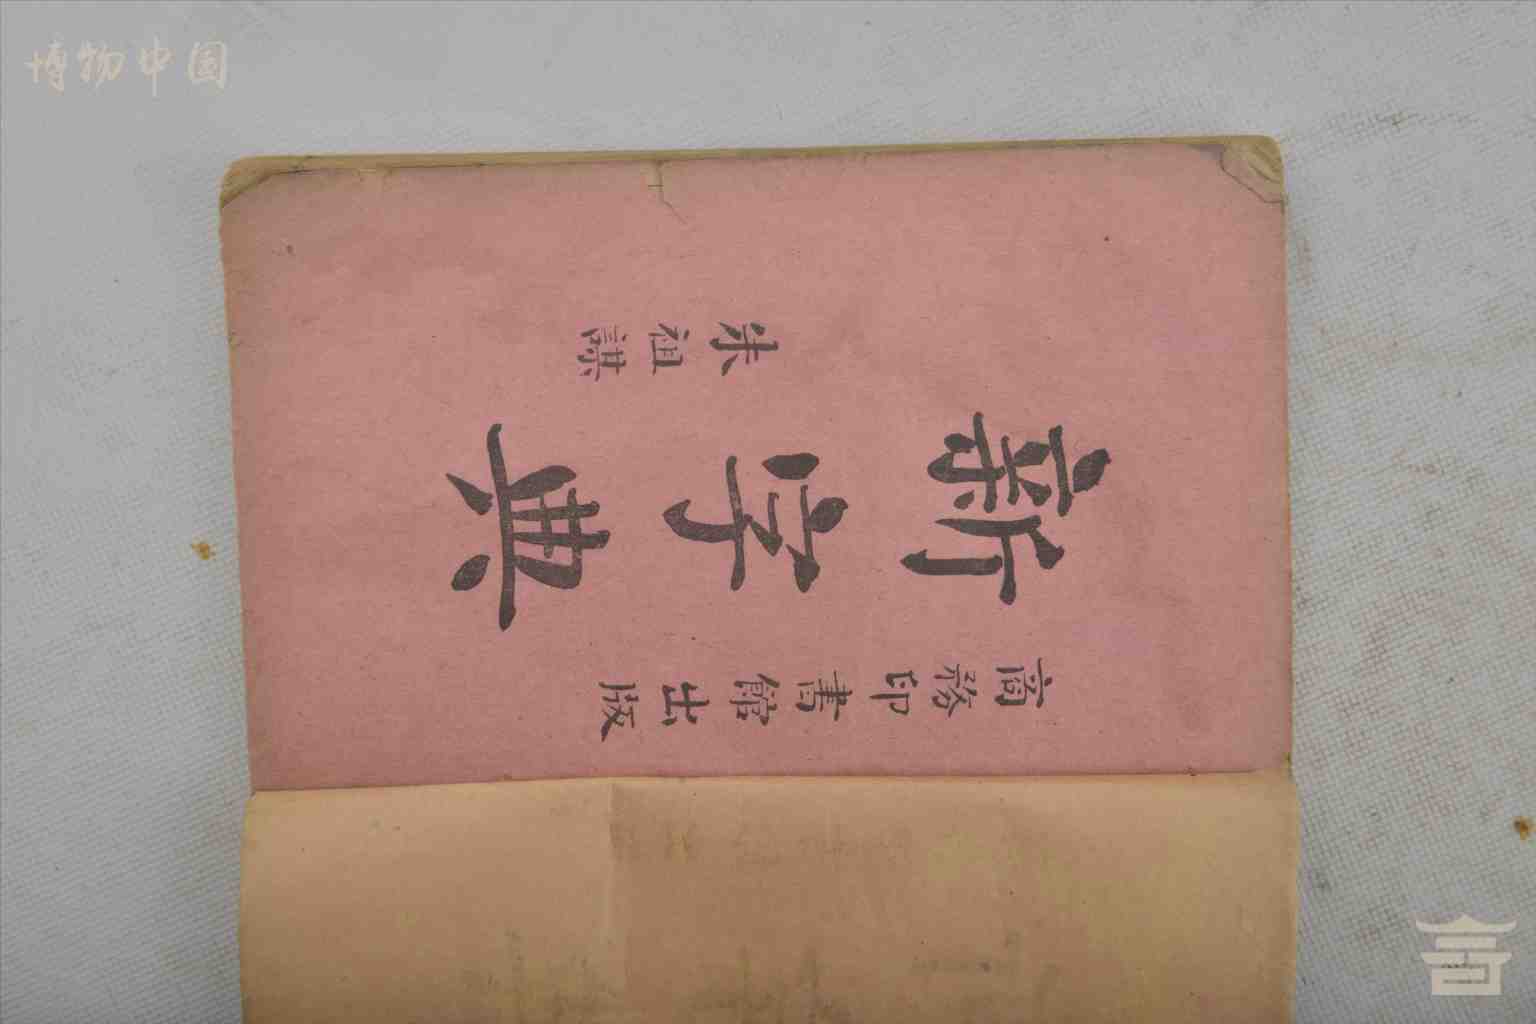 博物中国
商務印書館出版
新字典
朱祖謀